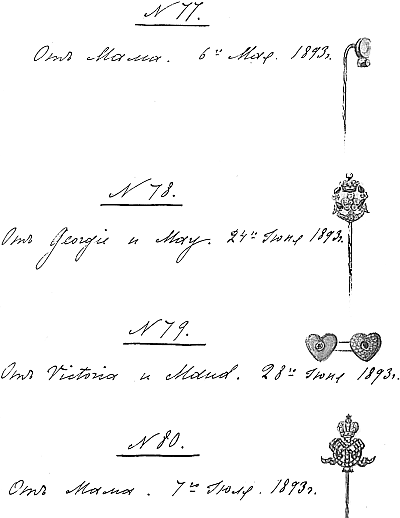 N 77.
Отъ Мама. 6го Мая. 1893г.
N 78.
Отъ Georgie и May. 24го Iюня 1893г.
N 79.
Отъ Victoria и Maud. 28го Iюня 1893г.
N 80.
Отъ Мама. 7го Iюля. 1893г.